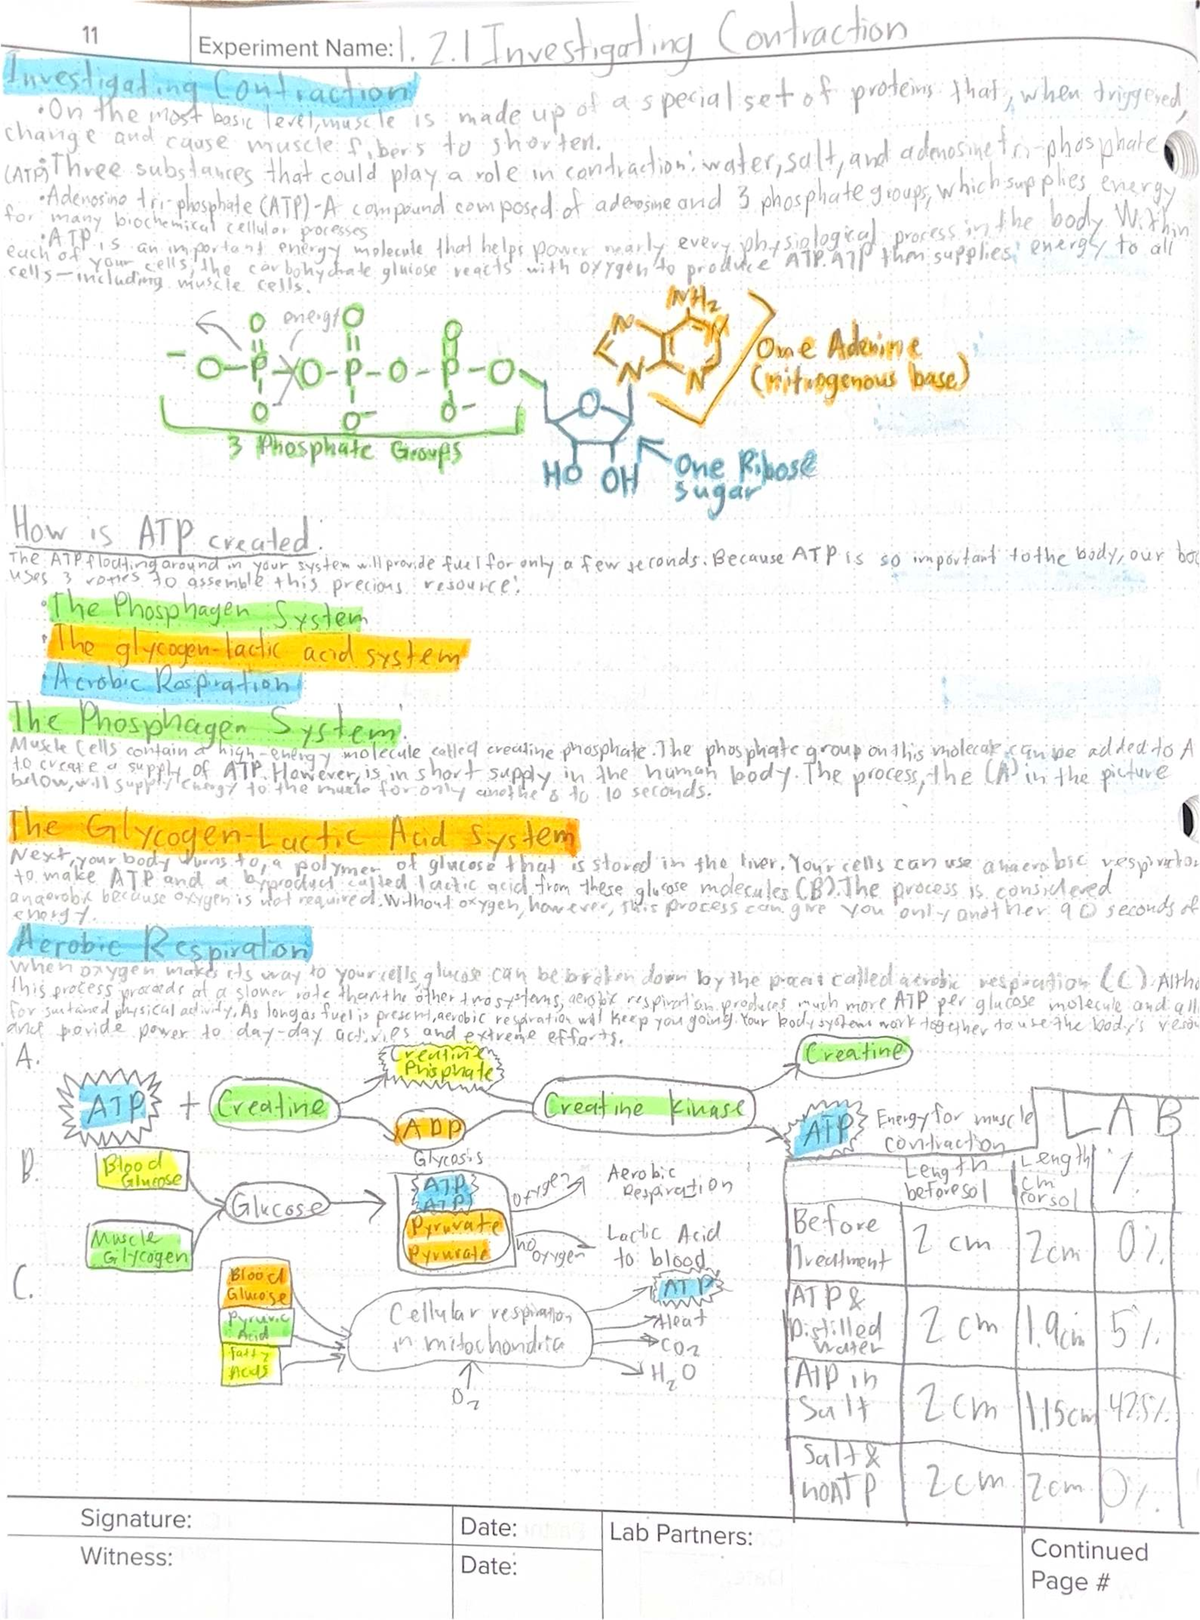 11
Experiment Name: 1. 2.1 Investigating Contraction
Investigating Contraction
•On the most basic level, muscle is made up of a special set of proteins that, when triggered,
change and cause muscle fibers to shorten.
(ATP)•Three substances that could play a role in contraction: water, salt, and adenosine tri-phosphate
•Adenosine tri-phosphate (ATP)-A compound composed of adenosine and 3 phosphate groups, which supplies energy
for many biochemical cellular processes
•ATP is an important energy molecule that helps power nearly every physiological process in the body. Within
each of your cells, the carbohydrate glucose reacts with oxygen to produce ATP. ATP then supplies energy to all
cells—including muscle cells.
energy
NH₂
One Adenine
(nitrogenous base)
3 Phosphate Groups
HO OH
One Ribose
sugar
How is ATP created:
The ATP floating around in your system will provide fuel for only a few seconds. Because ATP is so important to the body, our bod
uses 3 to assemble this precious resource:
•The Phosphagen System
•The glycogen-lactic acid system
•Aerobic Respiration
The Phosphagen System:
Muscle Cells contain a high-energy molecule called creatine phosphate. The phosphate group on this molecule can be added to A
to create a supply of ATP. However, is in short supply in the human body. The process, the (A) in the picture
below, will supply energy to the muscle for only another 8 to 10 seconds.
The Glycogen-Lactic Acid System
Next, your body turns to, a polymer of glucose that is stored in the liver. Your cells can use anaerobic respiration
to make ATP and a byproduct called lactic acid from these glucose molecules (B). The process is considered
anaerobic because oxygen is not required. Without oxygen, however, this process can give you only another 90 seconds of
energy.
Aerobic Respiration
When oxygen makes its way to your cells, glucose can be broken down by the process called aerobic respiration (C). Altho
this process proceeds at a slower rate than the other two systems, aerobic respiration produces much more ATP per glucose molecule and all
for sustained physical activity. As long as fuel is present, aerobic respiration will keep you going. Your body systems work together to use the body's resou
and povide power to day-day activies and extreme efforts.
A.
ATP + Creatine
Creatine
Phosphate
ADP
Creatine Kinase
Creatine
ATP
Energy for muscle
contraction
B.
Blood
Glucose
Muscle
Glycogen
Glucose
Glycosis
ATP
ATP
Pyruvate
Pyruvate
oxygen
Aerobic
Respiration
no
oxygen
Lactic Acid
to blood
C.
Blood
Glucose
Pyruvic
Acid
Fatty
Acids
Cellular respiration
in mitochondria
O₂
ATP
Heat
CO₂
H₂O
LAB
Length before sol
Length cm for sol
%
Before Treatment 2 cm 2cm 0%
ATP & Distilled Water 2 cm 1.9cm 5%
ATP in Salt 2 cm 1.15cm 42.5%
Salt & no ATP 2 cm 2cm 0%
Signature:
Date:
Lab Partners:
Witness:
Date:
Continued
Page #